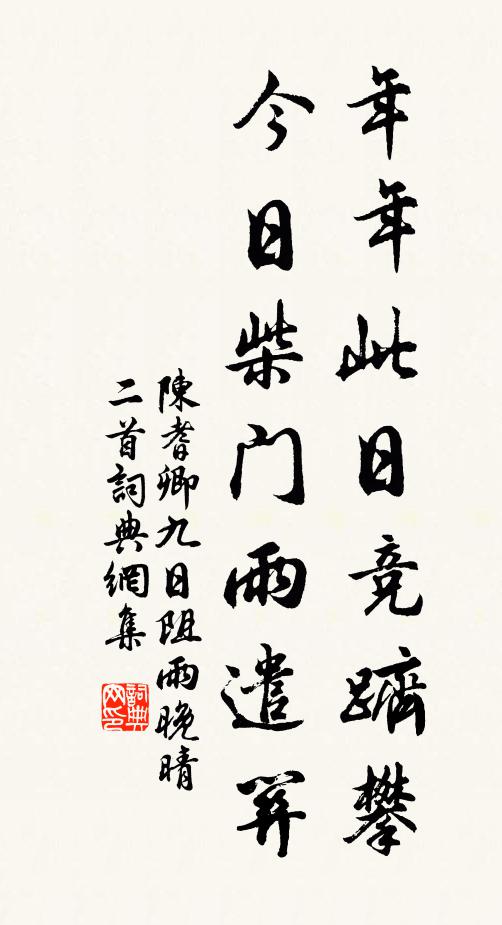 年年此日竞躋攀
今日柴门雨遣关
陳耆卿九日阻雨晚晴
二首詞典網集
詞典网印